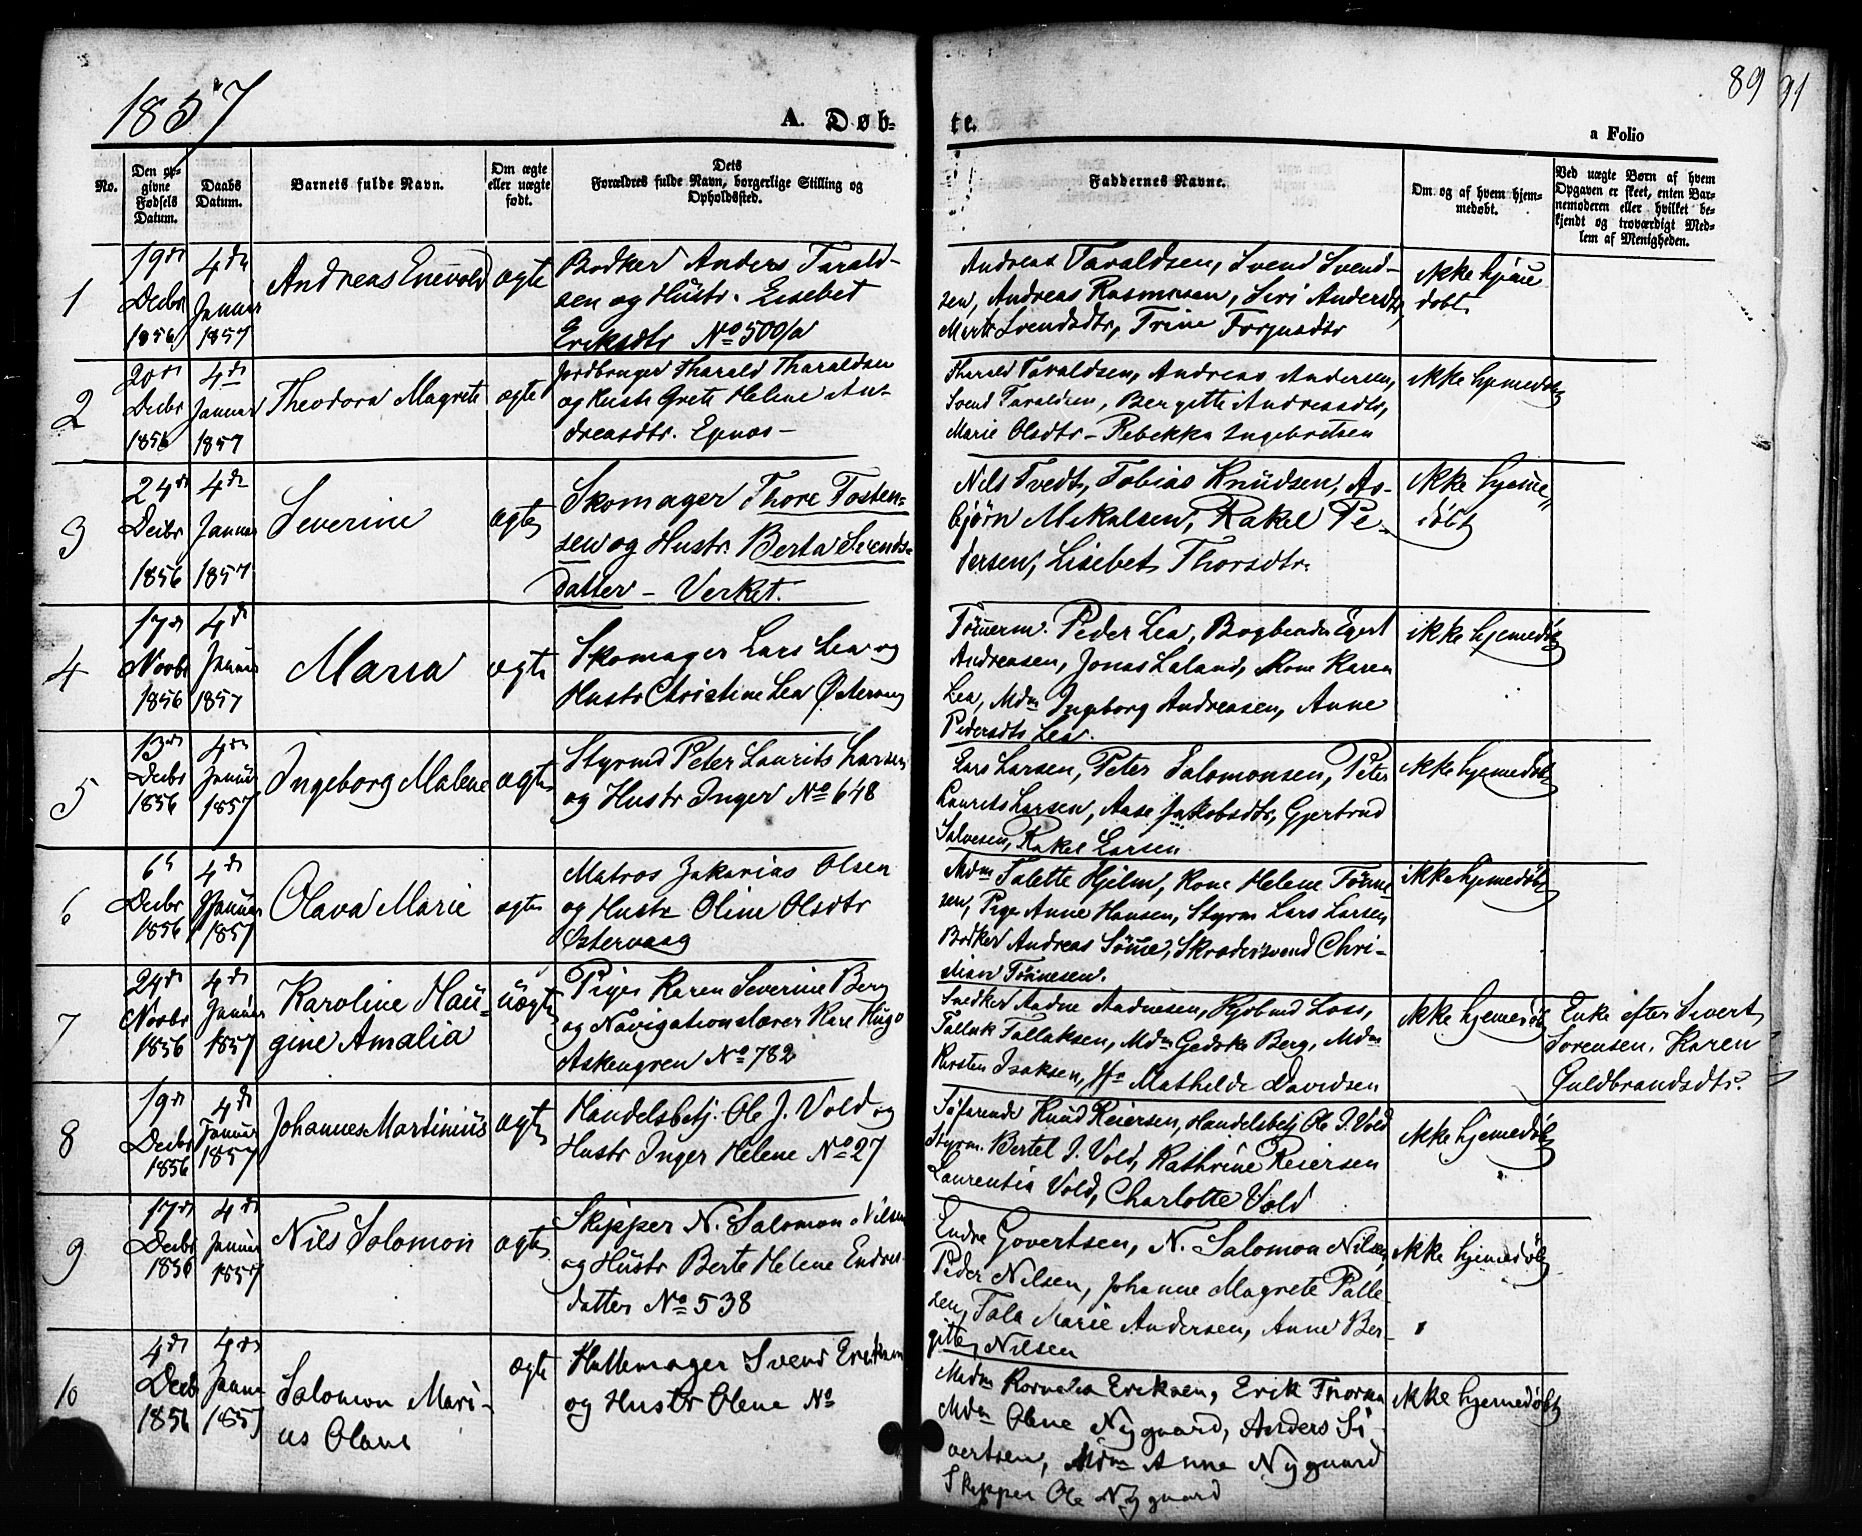 1857
A. Døb-
te.
89 91
a Folio
No.
Den op-
givne
Fødsels
Datum.
Daabs
Datum.
Barnets fulde Navn.
Om ægte
eller uægte
født.
Dets
Forældres fulde Navn, borgerlige Stilling og
Opholdssted.
Faddernes Navne.
Om og af hvem hjem-
medøbt.
Ved uægte Børn af hvem
Opgaven er skeet, enten Bar-
nemoderen eller hvilket be-
kjendt og troværdigt Med-
lem af Menigheden.
1
19de
Decbr
1856
4de
Januar
1857
Andreas Enevold
ægte
Bødker Anders Tarald-
sen og Hustr. Elisebet
Eriksdtr No 500/a
Andreas Taraldsen, Svend Svend-
sen, Andreas Rasmusen, Siri Andersdtr,
Svendsdtr, Trine
ikke hjem
døbt
2
20de
Decbr
1856
4de
Januar
1857
Theodora Magrete
ægte
Jordbruger Tharald Tharaldsen
og Hustr Grete Helene An-
dreasdtr. Egnæs -
Tharald Taraldsen, Andreas Andersen,
Svend Taraldsen, Bergitte Andreasdtr,
Marie Olsdtr - Rebekka Ingebretsen
ikke hjemedøbt
3
24de
Decbr
1856
4de
Januar
1857
Severine
ægte
Skomager Thore Tosten-
sen og Hustr. Berta Svends-
datter - Verket.
Nils Tvedt, Tobias Knudsen, As-
bjørn Mikalsen, Rakel Pe-
dersen, Lisebet Thorsdtr.
ikke hjeme
døbt
4
17de
Novbr
1856
4de
Januar
1857
Maria
ægte
Skomager Lars Lea og
Hustr Christine Lea Østervaag
Tömerm. Peder Lea, Bogbinder Egert
Andreasen, Jonas Laland, Kone Karen
Lea, Mdm Ingeborg Andreasen, Anne
Pedersdtr Lea.
ikke hjemedøbt
5
13de
Decbr
1856
4de
Januar
1857
Ingeborg Malene
ægte
Styrmd Peter Laurits Larsen
og Hustr Inger No 648
Lars Larsen, Peter Salomonsen, Peter
Laurits Larsen, Aase Jakobsdtr, Gjertrud
Salvesen, Rakel Larsen
ikke hjemedøbt
6
6te
Decbr
1856
4de
Januar
1857
Olava Marie
ægte
Matros Zakarias Olsen
og Hustr Oline Olsdtr
Østervaag
Mdm Talette Hjelm, Kone Helene Tönne-
sen, Pige Anne Hansen, Styrm Lars Larsen,
Bødker Andreas Sömme, Skrædersvend Chri-
stian Tönnesen.
ikke hjemedøbt
7
24de
Novbr
1856
4de
Januar
1857
Karoline Hau-
gine Amalia
uægte
Pige Karen Severine Berg
og Navigationslærer Kare Hugo
Askengren No 782
Snedker Aadne Aadnesen, Loss,
Tallak Tallaksen, Mdm Gedske Berg, Mdm
Kirsten Isaksen, Jfr Mathilde Davidsen
ikke hjemedøbt
Enke efter Sivert
Sørensen, Karen
Guldbrandsdtr.
8
19de
Decbr
1856
4de
Januar
1857
Johannes Martinius
ægte
Handelsbetj. Ole J. Vold og
Hustr Inger Helene No 27
Søfarende Knud Reiersen, Handelsbetj Ole I. Vold
Styrm. Bertel I. Vold, Kathrine Reiersen
Laurentia Vold, Charlotte Vold
ikke hjemedøbt
9
17de
Decbr
1856
4de
Januar
1857
Nils Solomon
ægte
Skipper N. Salomon Nilsen
og Hustr Berte Helene Endres-
datter No 538
Endre Govertsen, N. Salomon Nilsen,
Peder Nilsen, Johanne Magrete Palle-
sen, Tala Marie Andersen, Anne Ber-
gitte Nilsen
ikke hjemedøbt
10
4de
Decb
1856
4de
Janua
1857
Salomon Mari-
us Olaus
ægte
Hattemager Svend Eriksen
og Hustr Olene No
Mdm Kornelia Eriksen, Erik
Mdm Olene Nygaard, Anders Si-
vertsen, Mdm Anne Nygaard
Skipper Ole Nygaard
ikke hjemedøbt